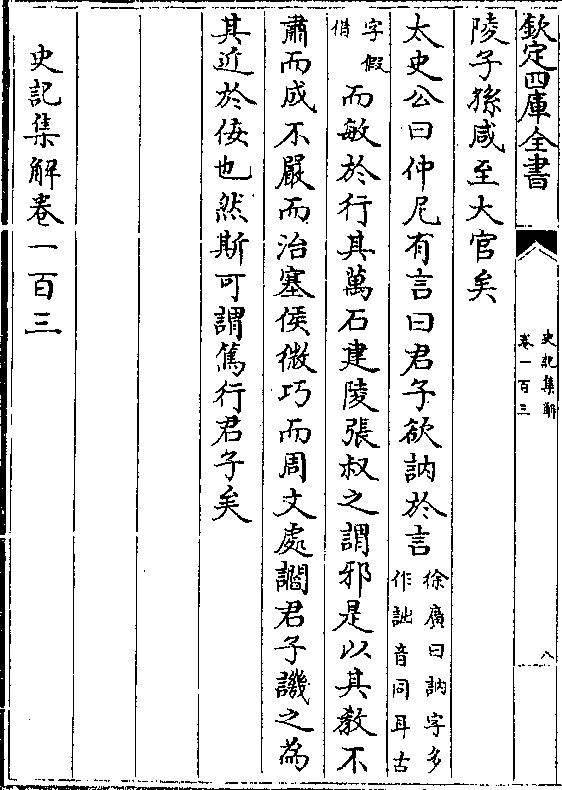 欽定四庫全書
史記集解
卷一百三
八
陵子孫咸至大官矣
太史公曰仲尼有言曰君子欲訥於言
徐廣曰訥字多
作詘音同耳古
字假
借
而敏於行其萬石建陵張叔之謂邪是以其教不
肅而成不嚴而治塞侯微巧而周文處讇君子譏之為
其近於佞也然斯可謂篤行君子矣
史記集解卷一百三